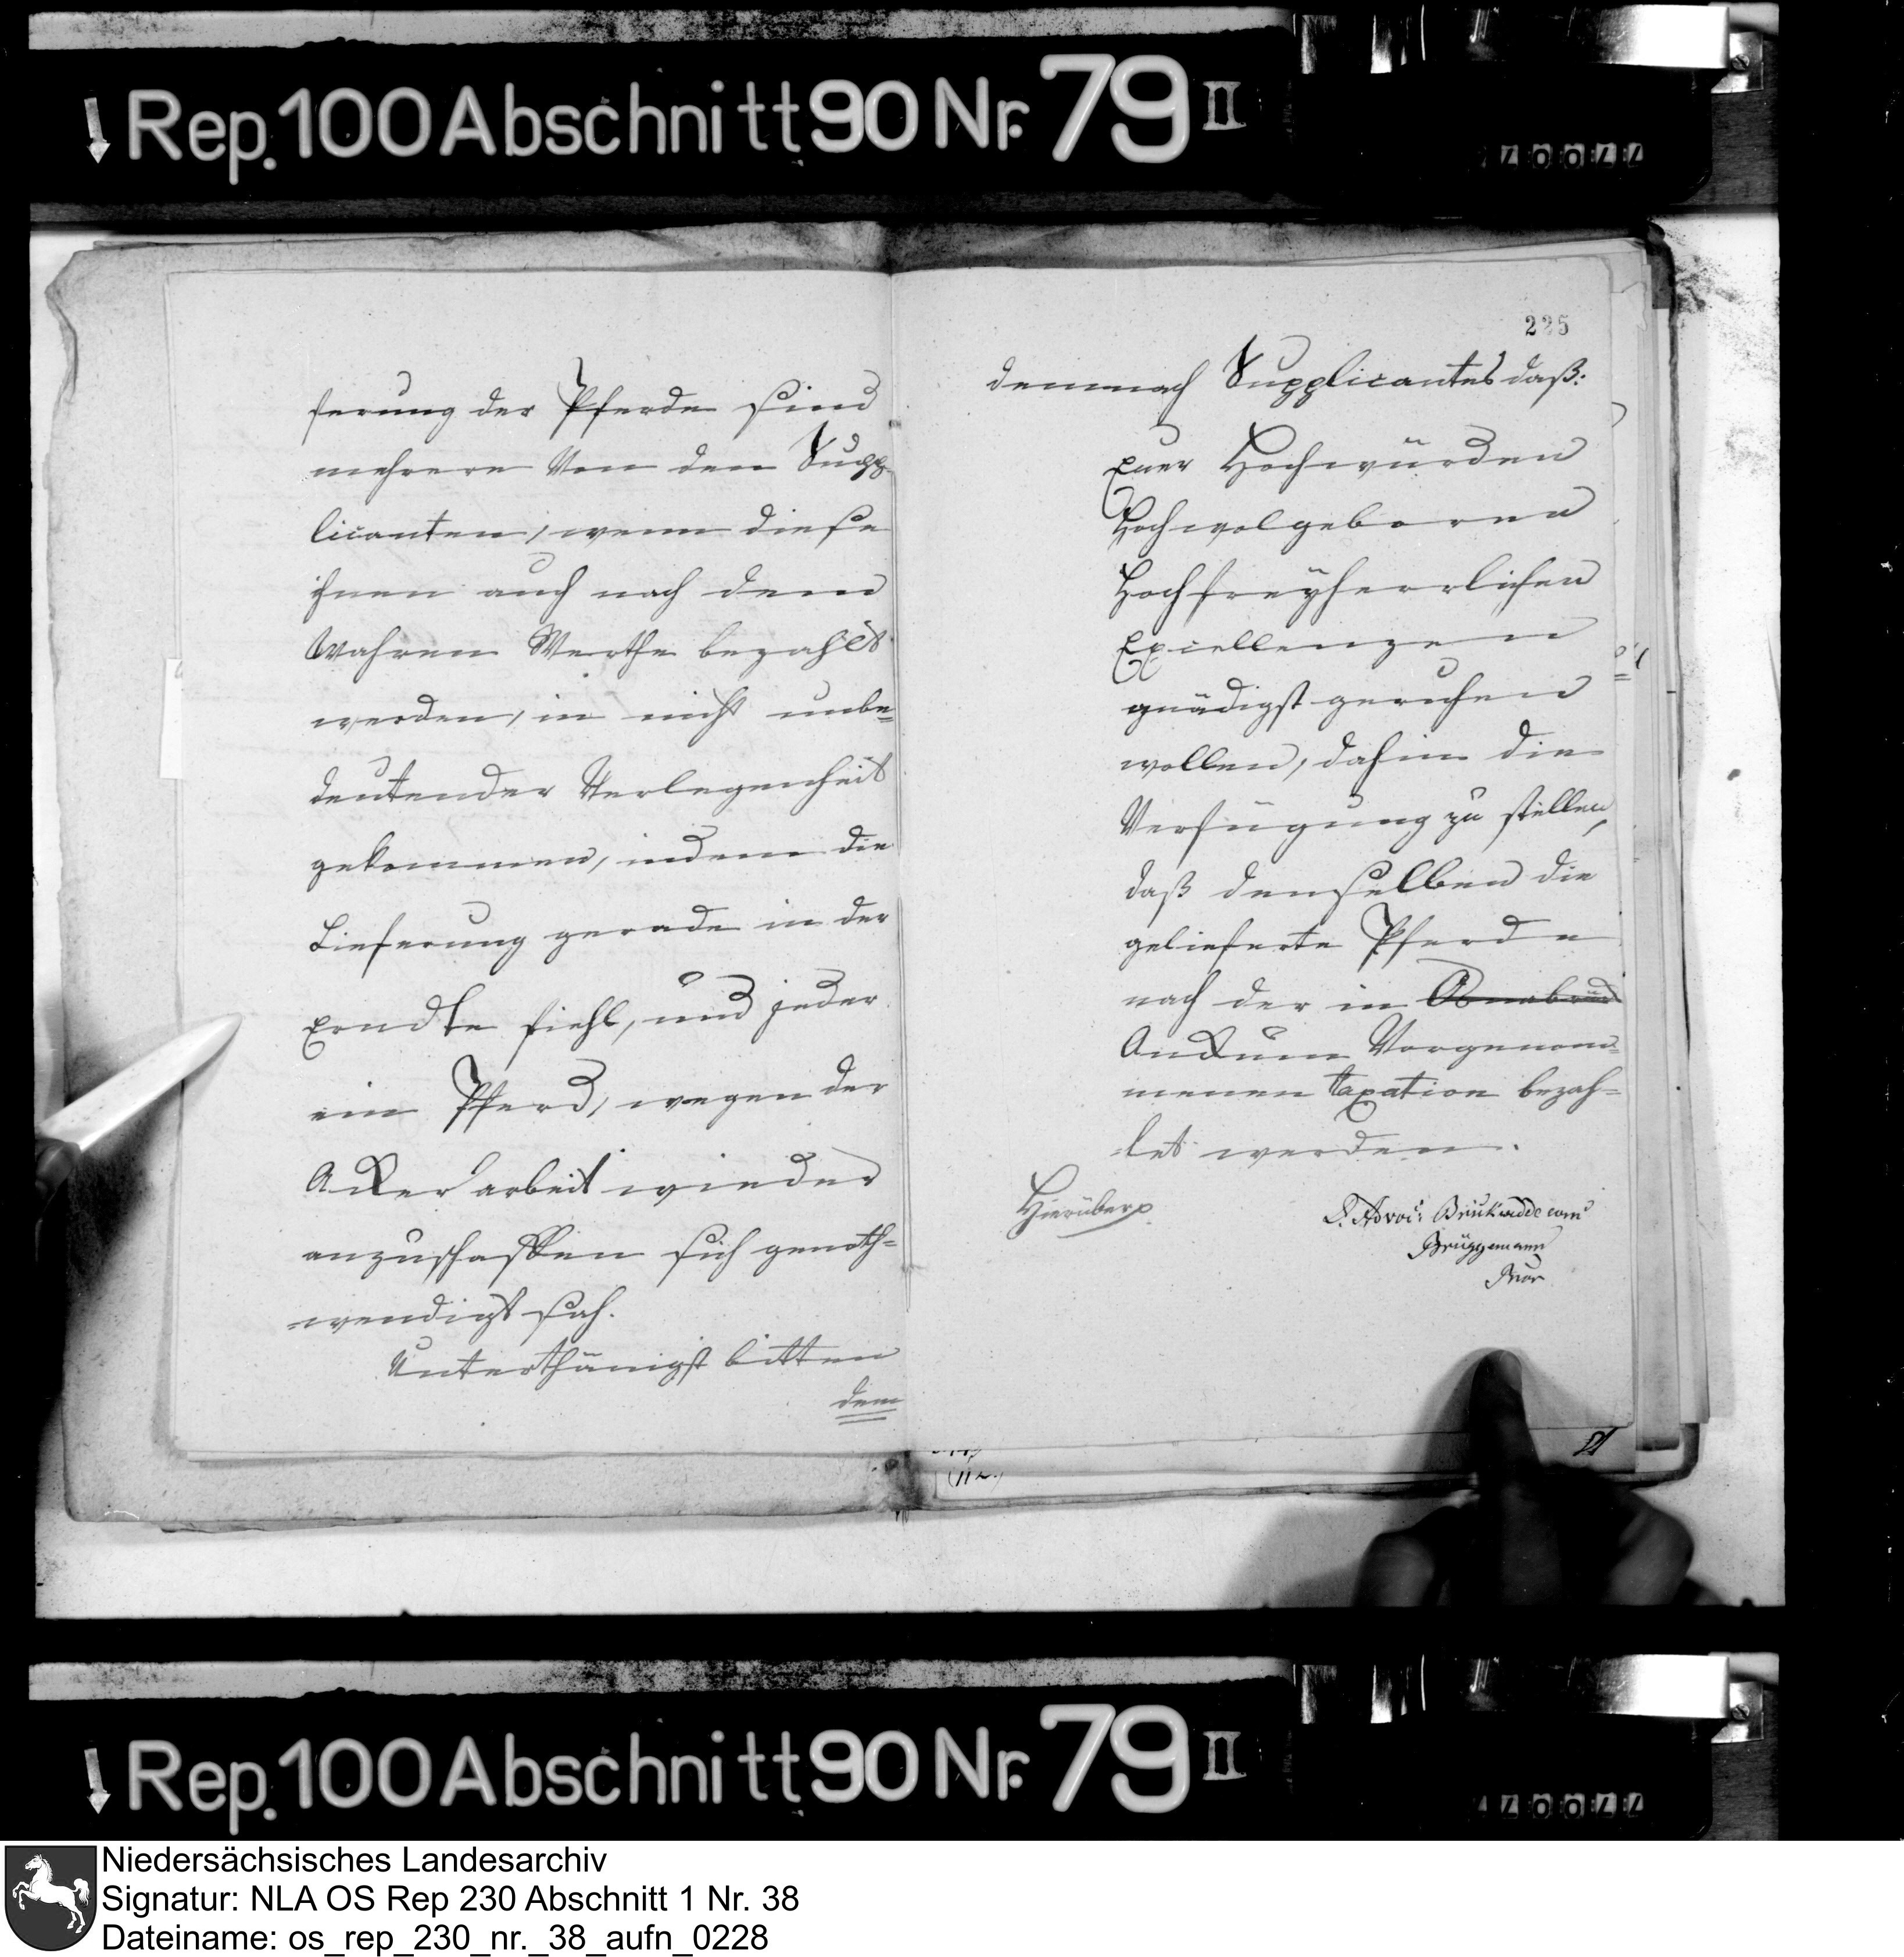 Rep. 100 Abschnitt 90 Nr. 79 II
ferung der Pferde sind
mehrere von den Supp-
licanten, wenn diese
ihnen auch nach dem
wahren Werthe bezahlt
werden, in nicht unbe=
deutender Verlegenheit
gekommen, indem die
Lieferung gerade in der
Erndte fiehl, und jeder
ein Pferd, wegen der
Acker arbeit wieder
anzuschaffen sich genoth=
=wendigt sah.
Unterthänigst bitten
dem
225
demnach Supplicantes daß:
Euer Hochwürden
Hochwolgeborne
Hochfreyherrlichen
Excellenzen
gnädigst geruhen
wollen, dahin die
Verfügung zu stellen,
daß denselben die
gelieferte Pferde
nach der in Osnabrück
Ankum vorgenom=
menen taxation bezah=
=let werden.
Hierüber p
Brüggemann
Rep. 100 Abschnitt 90 Nr. 79 II
Niedersächsisches Landesarchiv
Signatur: NLA OS Rep 230 Abschnitt 1 Nr. 38
Dateiname: os_rep_230_nr._38_aufn_0228